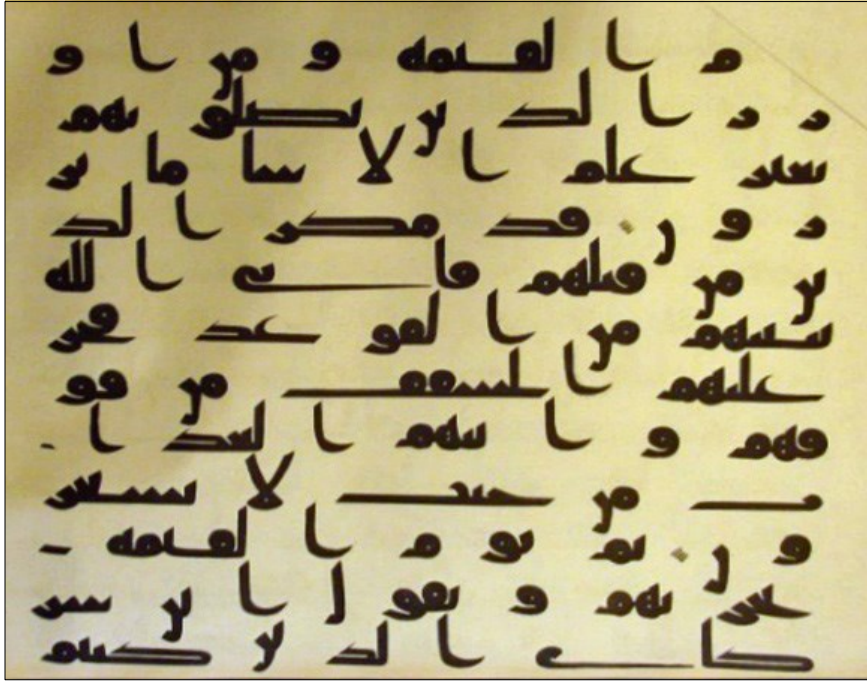 م القيمه و من ا و
ز ر الذ ين يضلو نهم
بغير علم ا لا سا ما يز
ر و ن قد مكر ا لذ
ين من قبلهم فا تى ا لله
بنينهم من ا لقو عد فخر
عليهم ا لسقف من فو
قهم و ا تيهم ا لعذ ا
ب من حيث لا يشعر
و ن ثم يو م ا لقيمه
يخزيهم و يقو ل ا ين شر
كا ى ا لذ ين كنتم